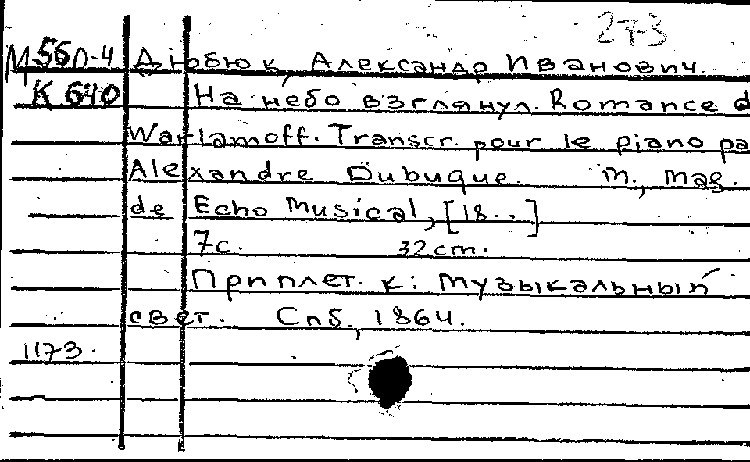 273
М 560-4 Дюбюк, Александр Иванович.
К 640 На небо взглянул. Romance d
Warlamoff. Transcr. pour le piano pa
Alexandre Dubuque. M., mag.
de Echo Musical, [18..]
7 с. 32 cm.
Приплет. к: Музыкальный
свет. Спб., 1864.
1173.